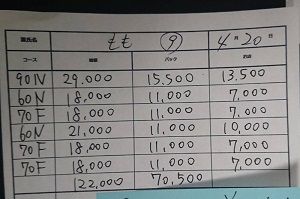 源氏名 もも ⑨ 4月20日
コース 総額 バック
90IN 29,000 15,500 13,500
60N 18,000 11,000 7,000
70F 18,000 11,000 7,000
60N 21,000 11,000 10,000
70F 18,000 11,000 7,000
70F 18,000 11,000 7,000
122,000 70,500